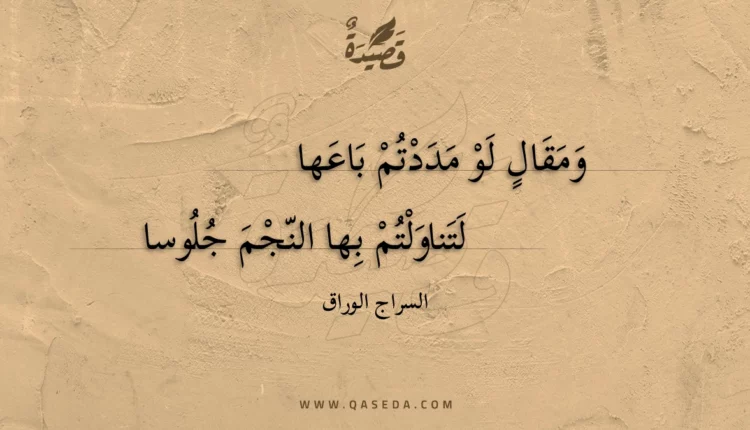 قَصِيْدَةٌ
وَمَقَالٍ لَوْ مَدَدْتُمْ بَاعَها
لَتَناوَلْتُمْ بِها النّجْمَ جُلُوسا
السراج الوراق
WWW.QASEDA.COM